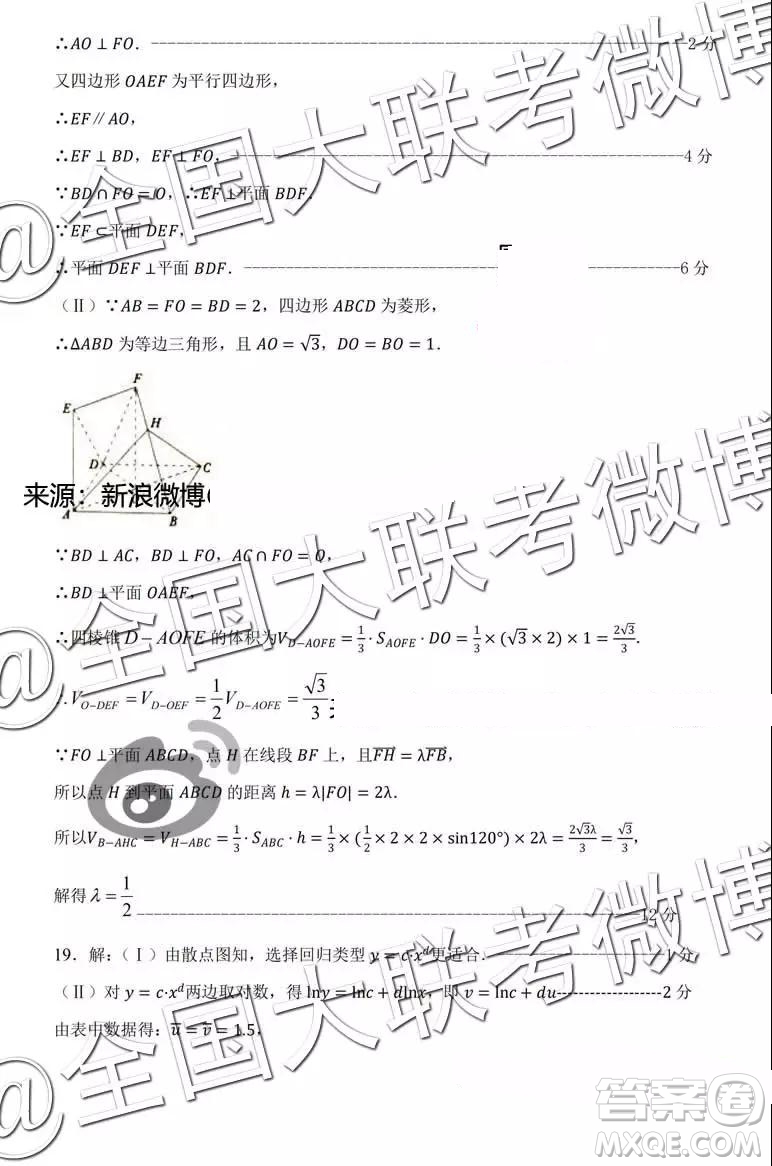 ∴AO ⊥ FO. 2 分
又四边形 OAEF 为平行四边形,
∴EF ∥ AO,
∴EF ⊥ BD, EF ⊥ FO, 4 分
∵BD ∩ FO = O, ∴EF ⊥平面 BDF.
∵EF ⊂平面 DEF,
∴平面 DEF ⊥平面 BDF. 6 分
(Ⅱ) ∵AB = FO = BD = 2, 四边形 ABCD 为菱形,
∴ΔABD 为等边三角形, 且 AO = √3, DO = BO = 1.
F
E
H
D
C
来源: 新浪微博
A
B
∵BD ⊥ AC, BD ⊥ FO, AC ∩ FO = O,
∴BD ⊥平面 OAEF,
∴四棱锥 D − AOFE 的体积为V_{D−AOFE} = 1/3 · S_{AOFE} · DO = 1/3 × (√3 × 2) × 1 = 2√3/3.
∴V_{O−DEF} = V_{D−OEF} = 1/2 V_{D−AOFE} = √3/3
∵FO ⊥平面 ABCD, 点 H 在线段 BF 上, 且FH = λFB,
所以点 H 到平面 ABCD 的距离 h = λ|FO| = 2λ.
所以V_{B−AHC} = V_{H−ABC} = 1/3 · S_{ABC} · h = 1/3 × (1/2 × 2 × 2 × sin120°) × 2λ = 2√3λ/3 = √3/3,
解得 λ = 1/2 12 分
19. 解: (Ⅰ) 由散点图知, 选择回归类型 y = c·x^d更适合. 1 分
(Ⅱ) 对 y = c·x^d两边取对数, 得 lny = lnc + dlnx, 即 v = lnc + du 2 分
由表中数据得: u̅ = v̅ = 1.5,
@全国大联考微博
@全国大联考微博
@全国大联考微博
答案卷
MXQE.COM